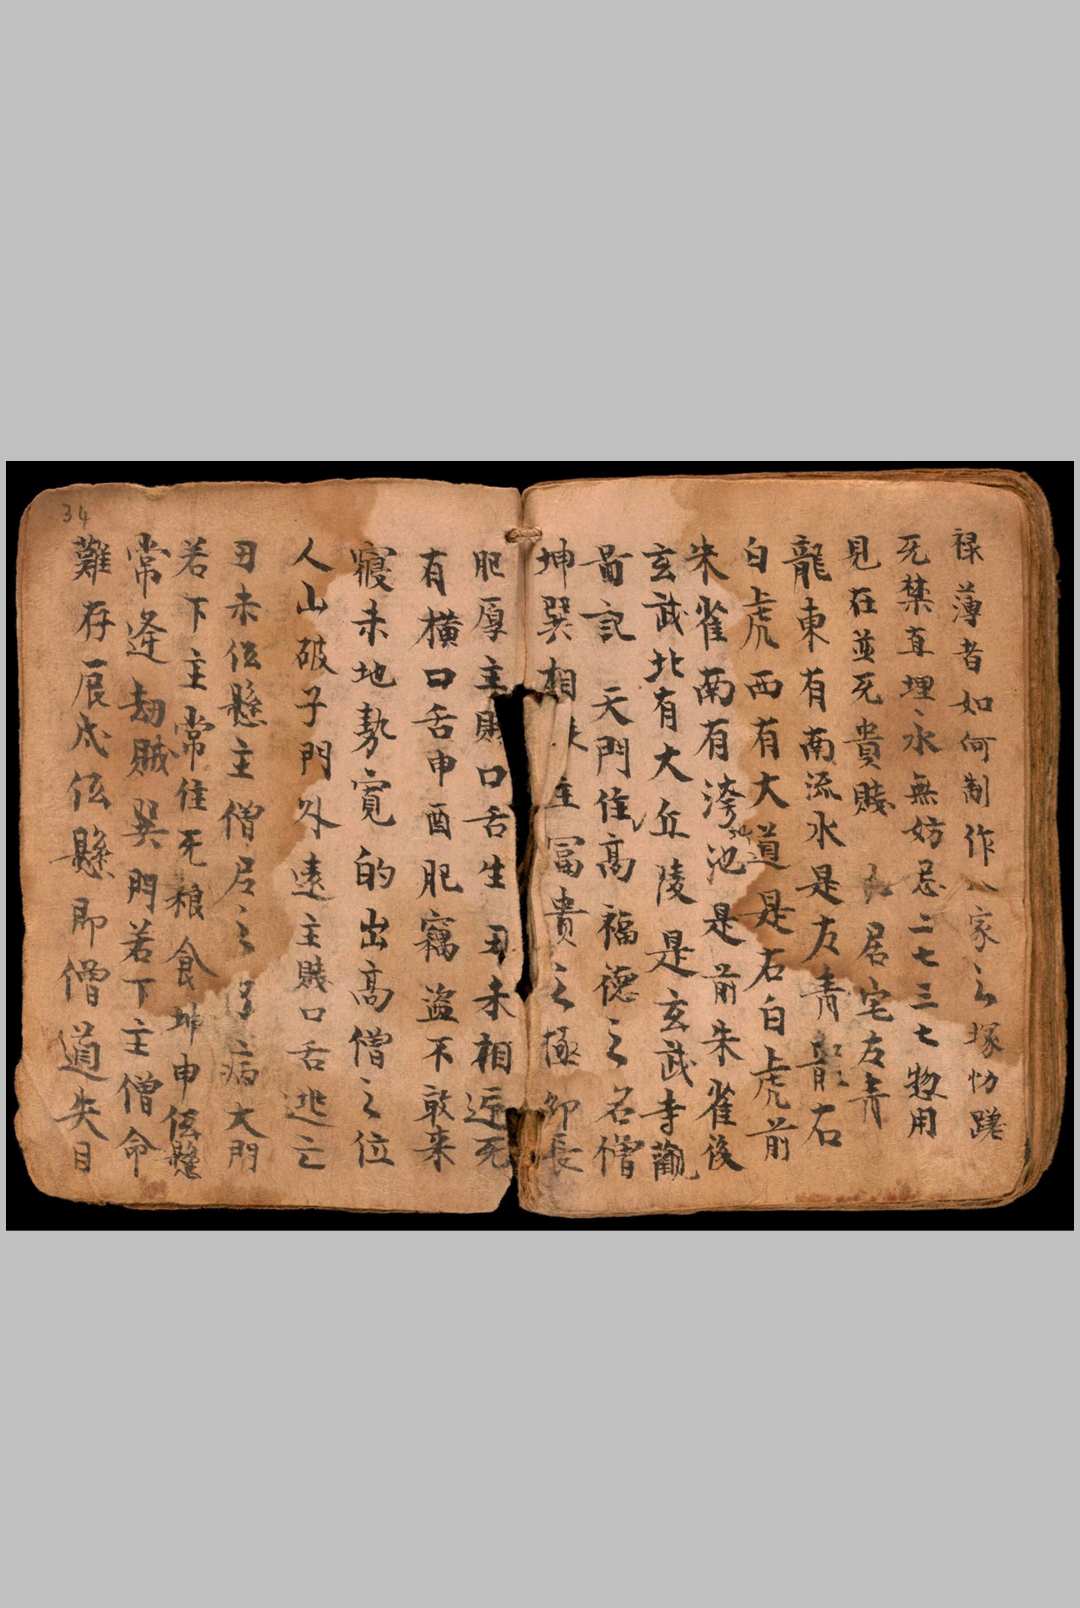 禄薄者如何制作人家之塚切蹉
死禁直埋永無妨忌二七三七惣用
見在並死貴賤 居宅左青
龍東有南流水是左青龍右
白虎西有大道是右白虎前
朱雀南有洿池是前朱雀後
玄武北有大丘陵是玄武寺觀
啚記 天門隹高福德之名僧
坤巽相 主冨貴之極卯長
肥厚主賊口舌生丑未相近死
有橫口舌申酉肥竊盜不敢来
寢未地勢寬的出高僧之位
人山破子門外遠主賤口舌逃亡
丑未伭懸主僧居之 病大門
若下主常住死粮食坤申伭懸
常逢劫賊巽門若下主僧命
難存辰戌伭懸即僧道失目
34